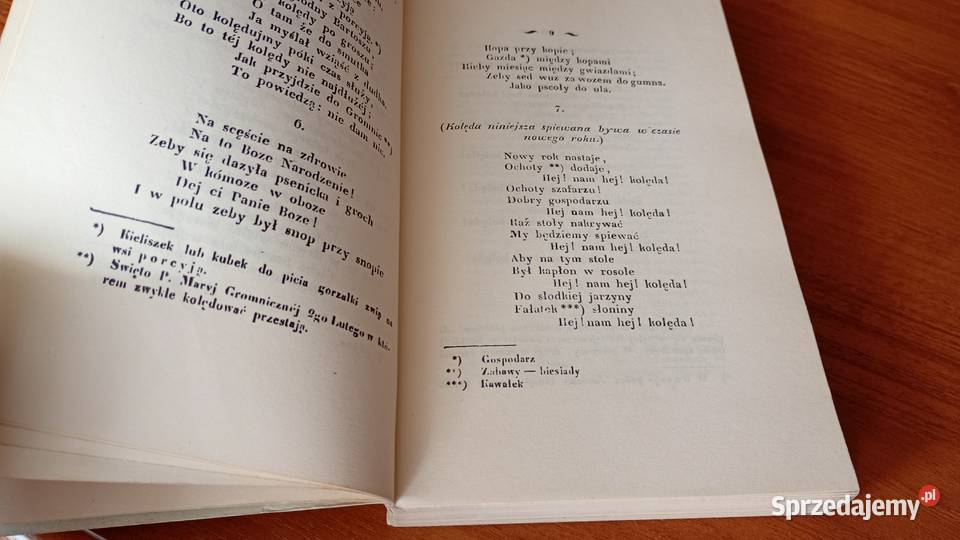 z porcyją.*)
odny Bartoszu
kolędy po groszu;
O tam że do smutka
Ja myślał wziąść z dudka.
Oto kolędujmy póki czas służy,
Bo to téj kolędy nie najdłużéj;
Jak przyjdzie do Gromnic**)
To powiedzą: nie dam nic.
6.
Na scęście na zdrowie
Na to Boze Narodzenie!
Zeby się dazyła psenicka i groch
W kómoze w oboze
Dej ci Panie Boze!
I w polu zeby był snop przy snopie
*) Kieliszek lub kubek do picia gorzałki zwią na
wsi porcyją.
**) Swięto P. Maryj Gromnicznéj 2go Lutego w któ-
rem zwykle kolędować przestają.
9
Kopa przy kopie;
Gazda *) między kopami
Kieby miesiąc między gwiazdami;
Zeby sed wuz za wozem do gumna.
Jako pscoły do ula.
7.
(Kolęda niniejsza spiewana bywa w czasie
nowego roku.)
Nowy rok nastaje,
Ochoty **) dodaje,
Hej! nam hej! kolęda!
Ochoty szafarzu!
Dobry gospodarzu
Hej! nam hej! kolęda!
Każ stoły nakrywać
My będziemy spiewać
Hej! nam hej! kolęda!
Aby na tym stole
Był kapłon w rosole
Hej! nam hej! kolęda!
Do słodkiej jarzyny
Fałatek ***) słoniny
Hej! nam hej! kolęda!
*) Gospodarz
**) Zabawy — biesiady
***) Kawałek
Sprzedajemy.pl